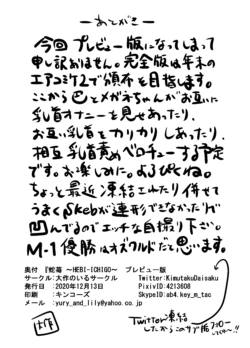 ーあとがきー
今回プレビュー版になってしまって
申し訳ありません。完全版は年末の
エアコミケ2で頒布を目指します。
ここから巴とメガネちゃんがお互いに
乳首オナニーを見せあったり、
お互い乳首をカリカリしあったり、
相互乳首責めベロチューする予定
です。お楽しみに。よろぴくね。
ちょっと最近凍結されたり併せて
うまくSkebが連形できなかったりで
凹んでるのでエッチな自撮り下さい。
M-1優勝はオズワルドだと思います。
奥付 『蛇苺 ～HEBI-ICHIGO～ プレビュー版
サークル:大作のいるサークル Twitter:KimutakuDaisaku
発行日 :2020年12月13日 PixivID:4213608
印刷 :キンコーズ SkypeID:ab4.key_m_tac
メール :yury_and_lily@yahoo.co.jp
大作
Twitter凍結
したからこのサブ垢フォロー